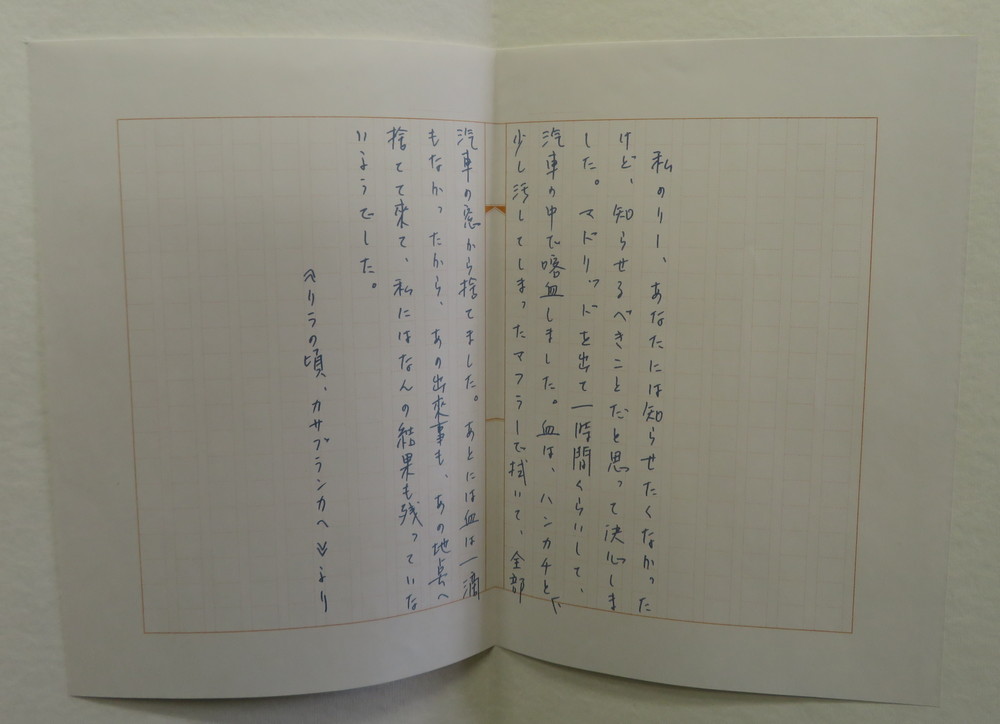 私のリー、あなたには知らせたくなかった
けど、知らせるべきことだと思って決心しま
した。マドリッドを出て一時間くらいして、
汽車の中で喀血しました。血は、ハンカチと、
少し汚してしまったマフラーで拭いて、全部
汽車の窓から捨てました。あとには血は一滴
もなかったから、あの出來事も、あの地点へ
捨てて來て、私にはなんの結果も残っていな
いようでした。
≪リラの頃、カサブランカへ≫より